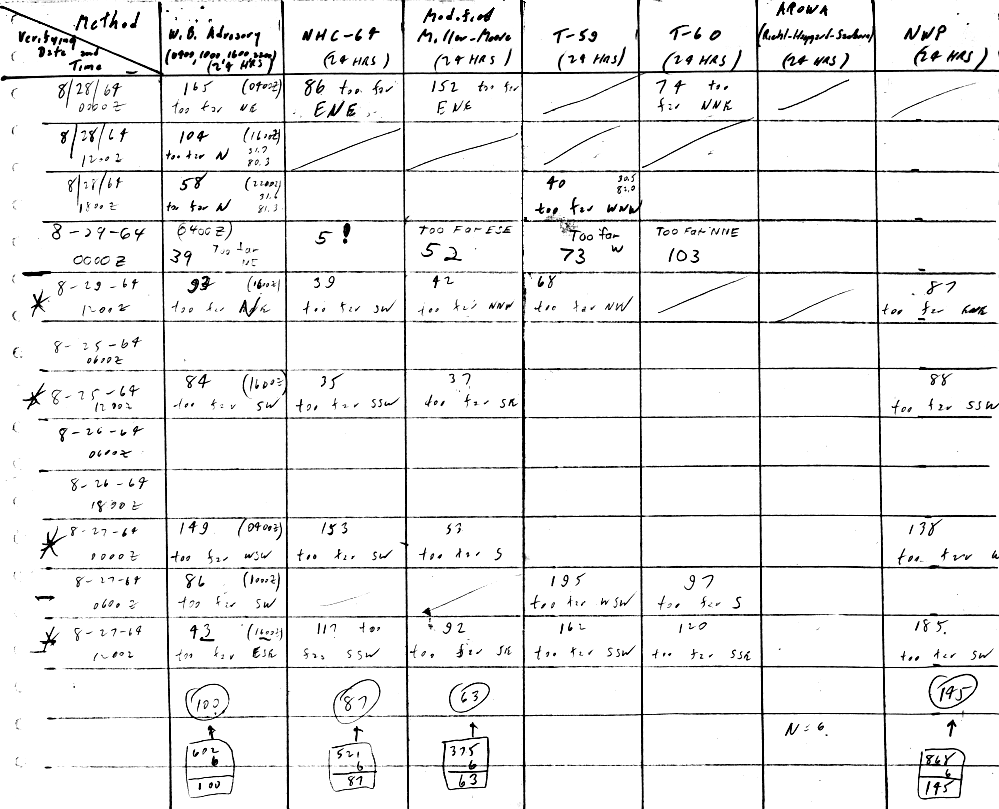 Method
Verifying Date and Time
W.B. Advisory
(0400, 1000, 1600, 2200)
(24 HRS)
NHC-64
(24 HRS)
Modified
Miller-Moore
(24 HRS)
T-59
(24 HRS)
T-60
(24 HRS)
AROWA
(24 HRS)
NWP
(24 HRS)
8/28/64
0000Z
165 (0400Z)
too far NE
86 too far
ENE
152 too far
ENE
74 too
far NNE
8/28/64
1200Z
104 (1600Z)
too far N
31.7
80.3
8/28/64
1800Z
58 (2200Z)
too far N
31.6
81.3
40
30.5
82.0
too far WNW
8-29-64
0000Z
(0400Z)
39 Too far
NE
5!
TOO FAR ESE
52
Too far
73 W
TOO FAR NNE
103
* 8-29-64
1200Z
93 (1600Z)
too far
39
too far SW
42
too far NNW
68
too far NW
87
too far ENE
8-25-64
0600Z
* 8-25-64
1200Z
84 (1600Z)
too far SW
35
too far SSW
37
too far SE
88
too far SSW
8-26-64
0600Z
8-26-64
1800Z
* 8-27-64
0000Z
149 (0400Z)
too far WSW
153
too far SW
53
too far S
138
too far W
8-27-64
0600Z
86 (1000Z)
too far SW
195
too far WSW
97
too far S
* 8-27-64
1200Z
43 (1600Z)
too far ESE
117 too
far SSW
92
too far SE
162
too far SSW
120
too far SSE
185
too far SW
100
87
63
145
N=6
602
6
100
521
6
87
375
6
63
868
6
145